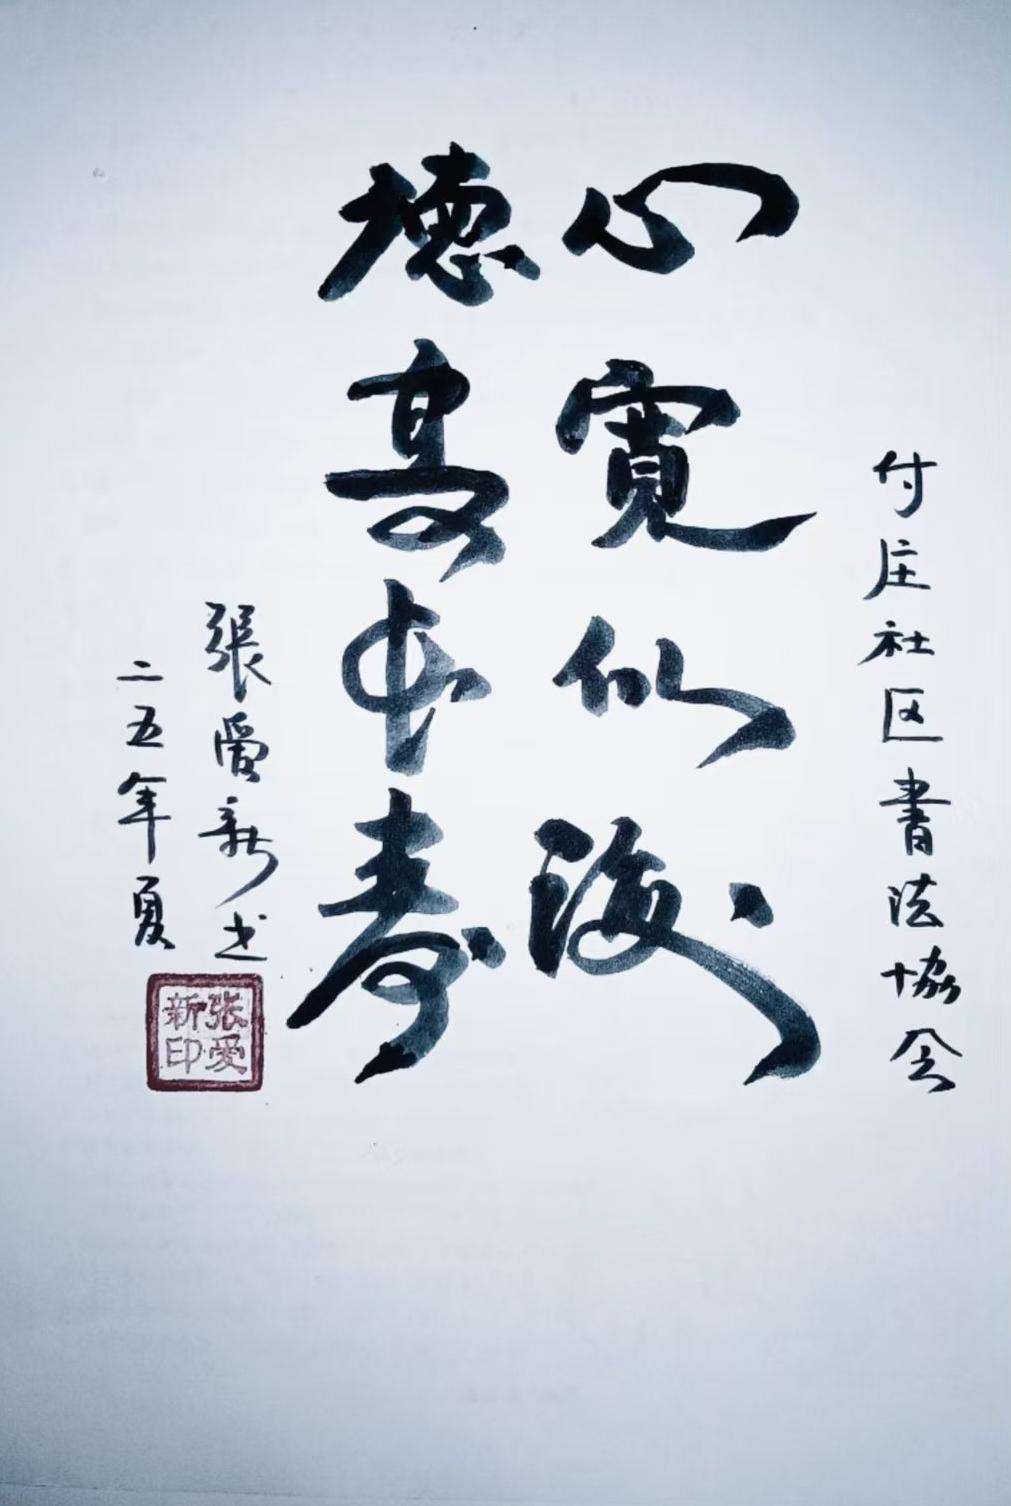 付庄社区書法協会
心寬似海
德高寿
張愛新书
二五年夏
张爱
新印